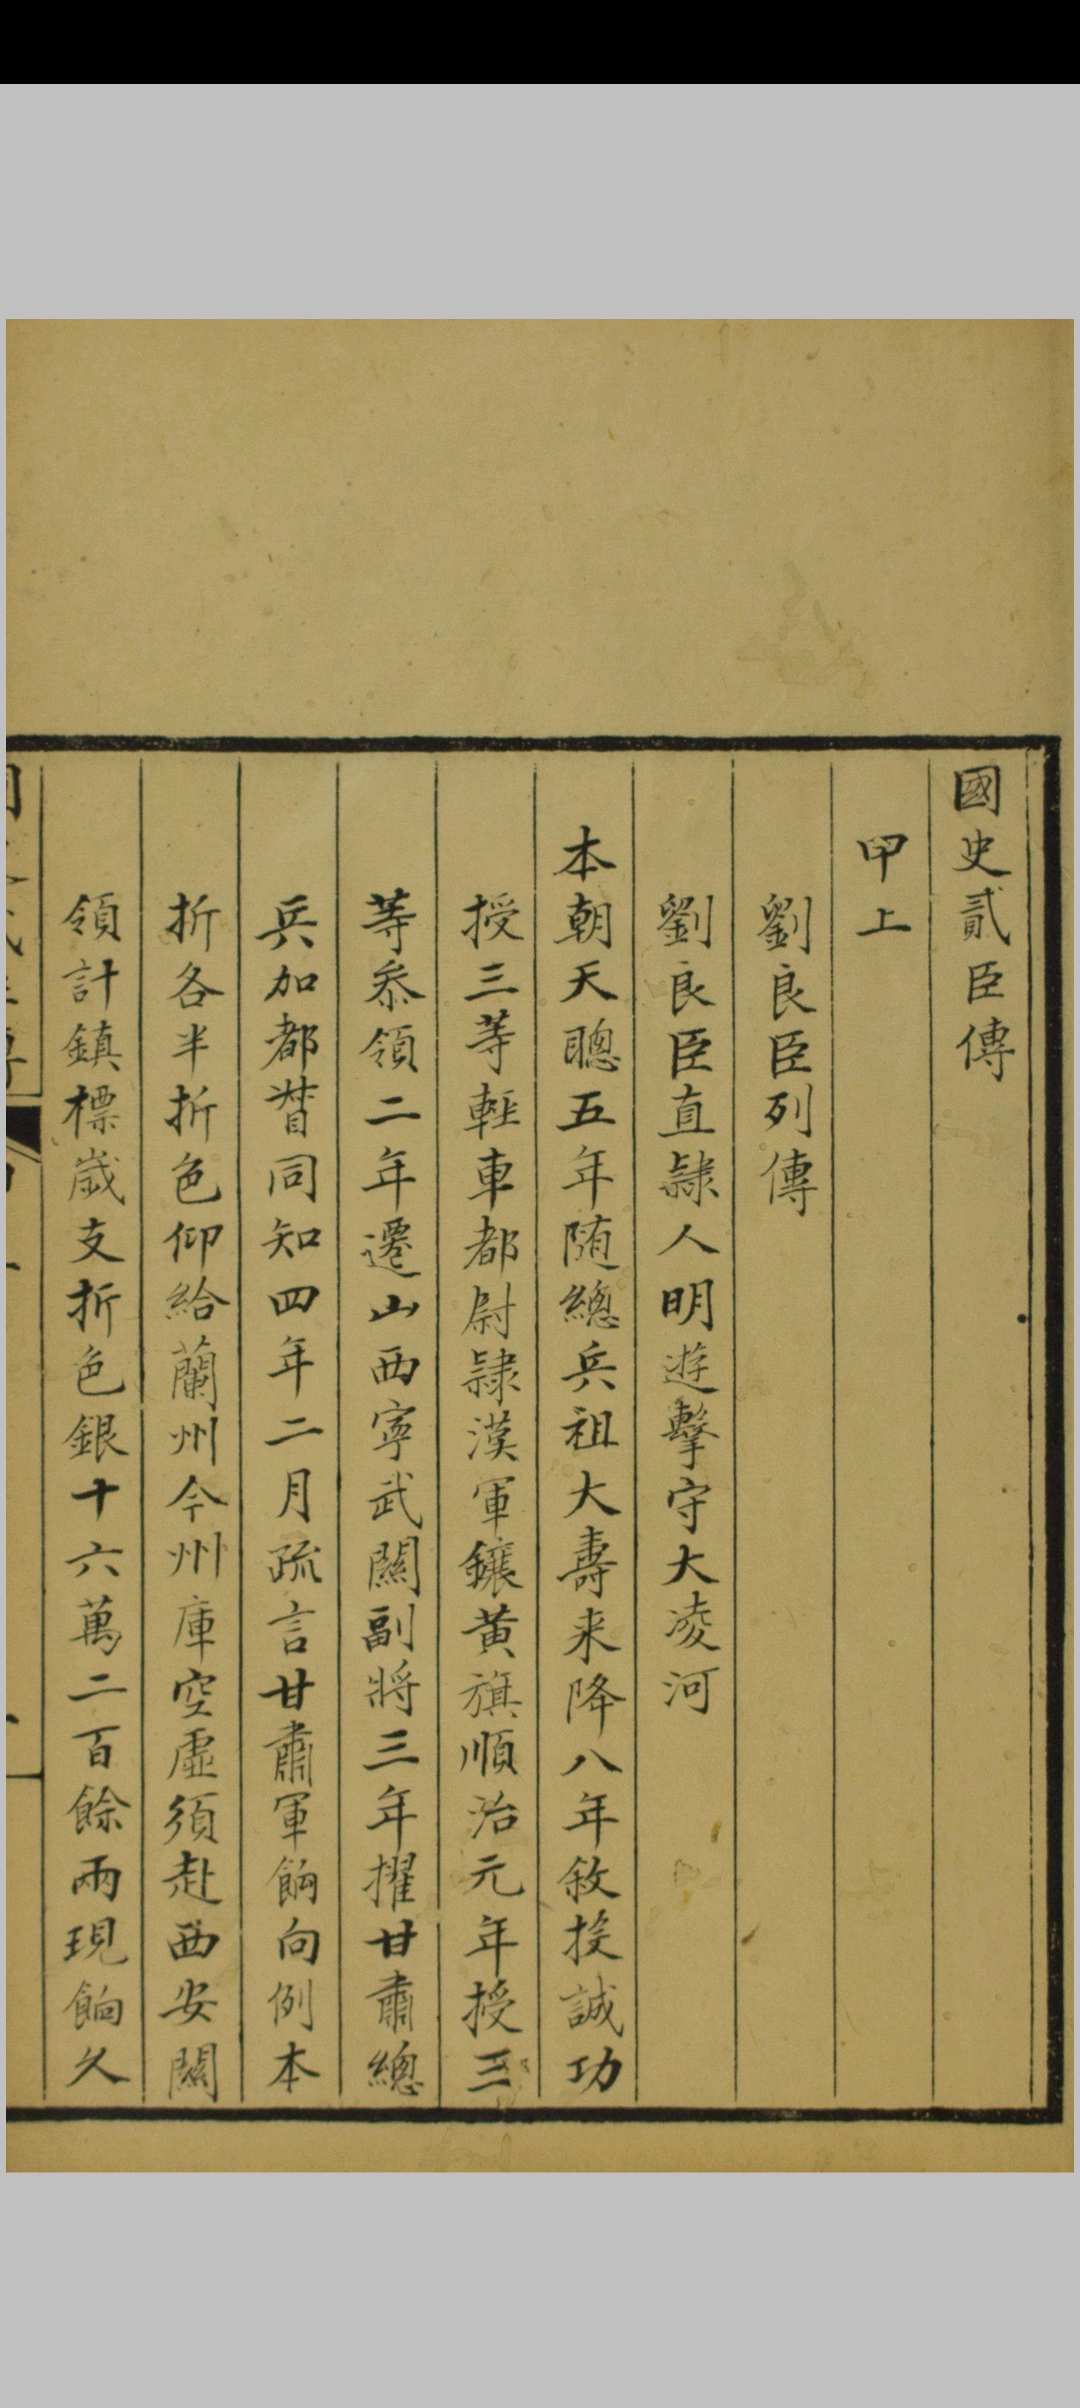 國史貳臣傳
甲上
劉良臣列傳
劉良臣直隸人明遊擊守大凌河
本朝天聰五年随總兵祖大壽来降八年敘投誠功
授三等輕車都尉隸漢軍鑲黃旗順治元年授三
等叅領二年遷山西寧武關副將三年擢甘肅總
兵加都督同知四年二月疏言甘肅軍餉向例本
折各半折色仰給蘭州今州庫空虛須赴西安關
領計鎮標歲支折色銀十六萬二百餘兩現餉久